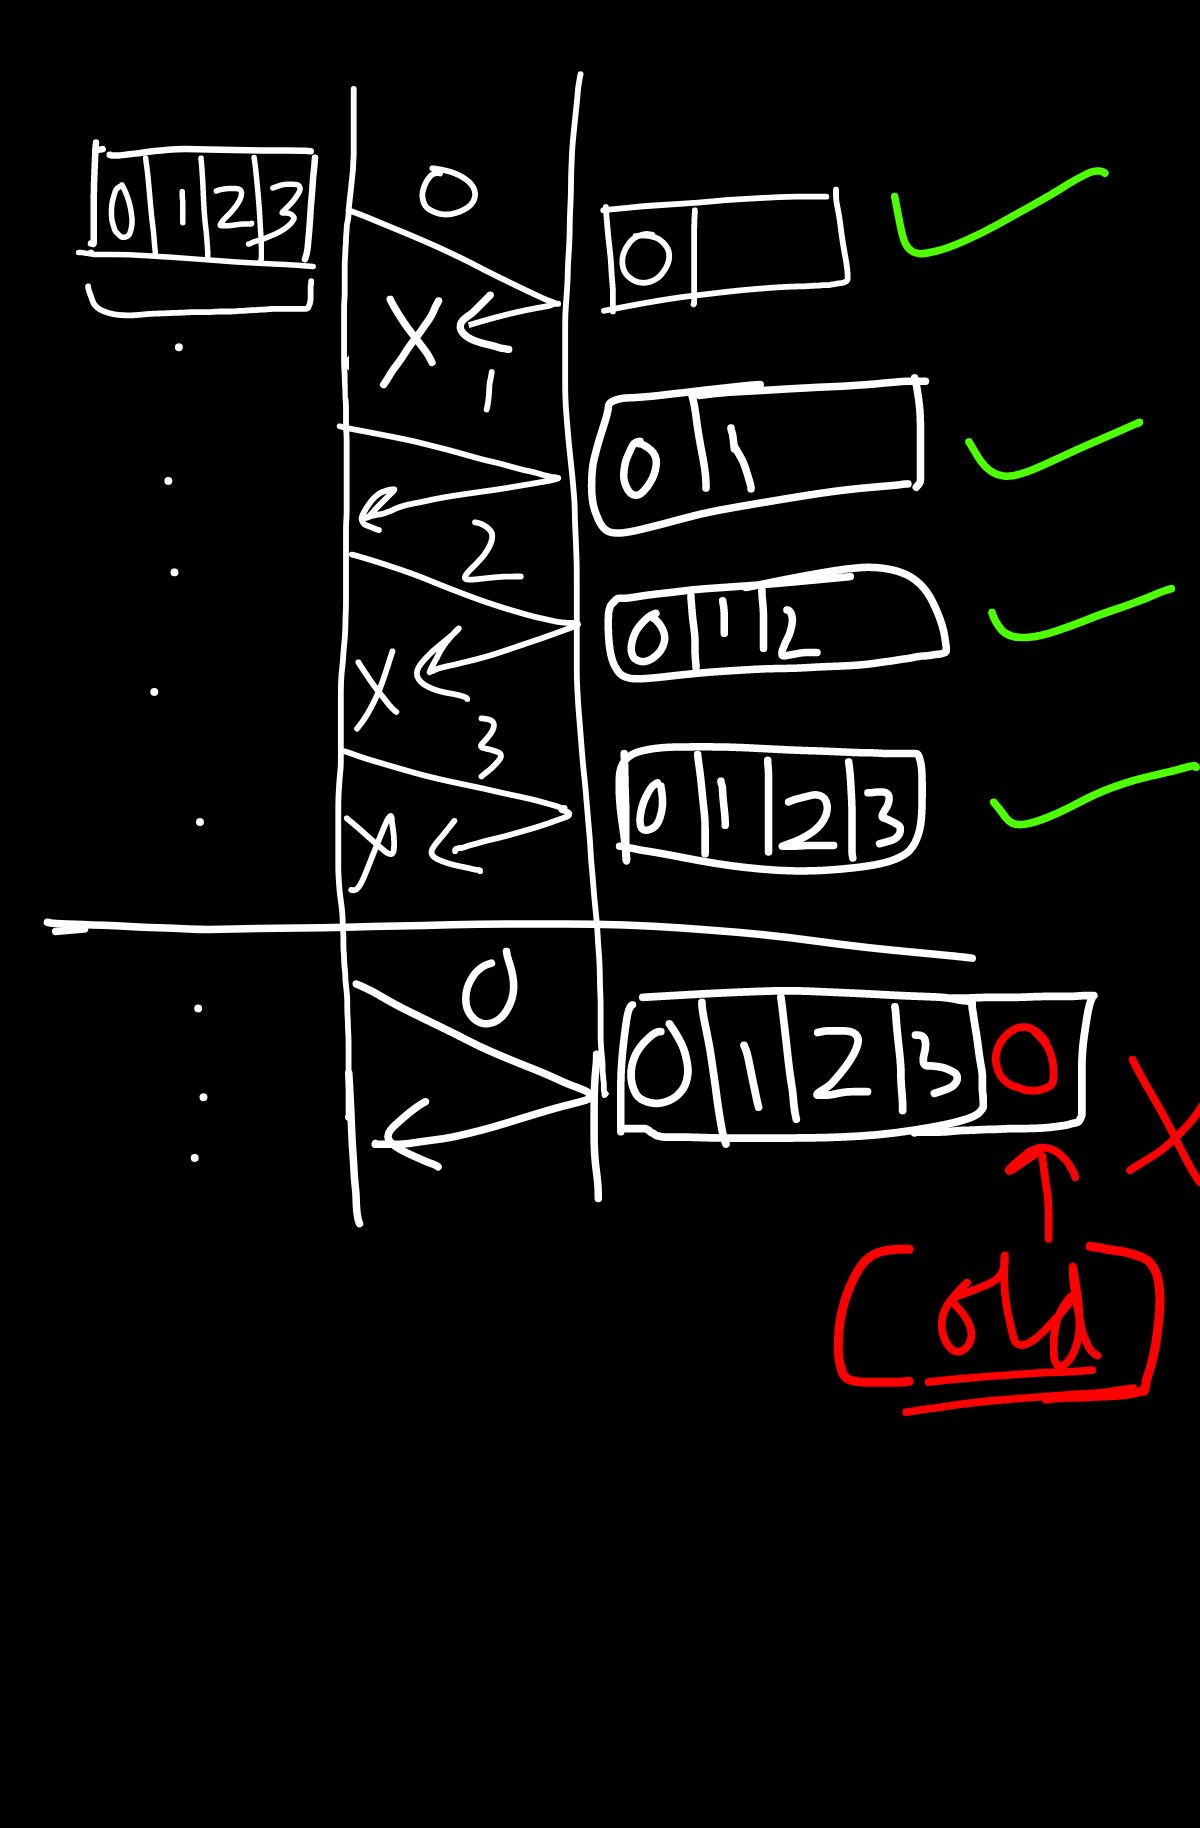 0 1 2 3
0
0
X
1
0 1
2
0 1 2
X
3
0 1 2 3
X
0
0 1 2 3 0
X
old